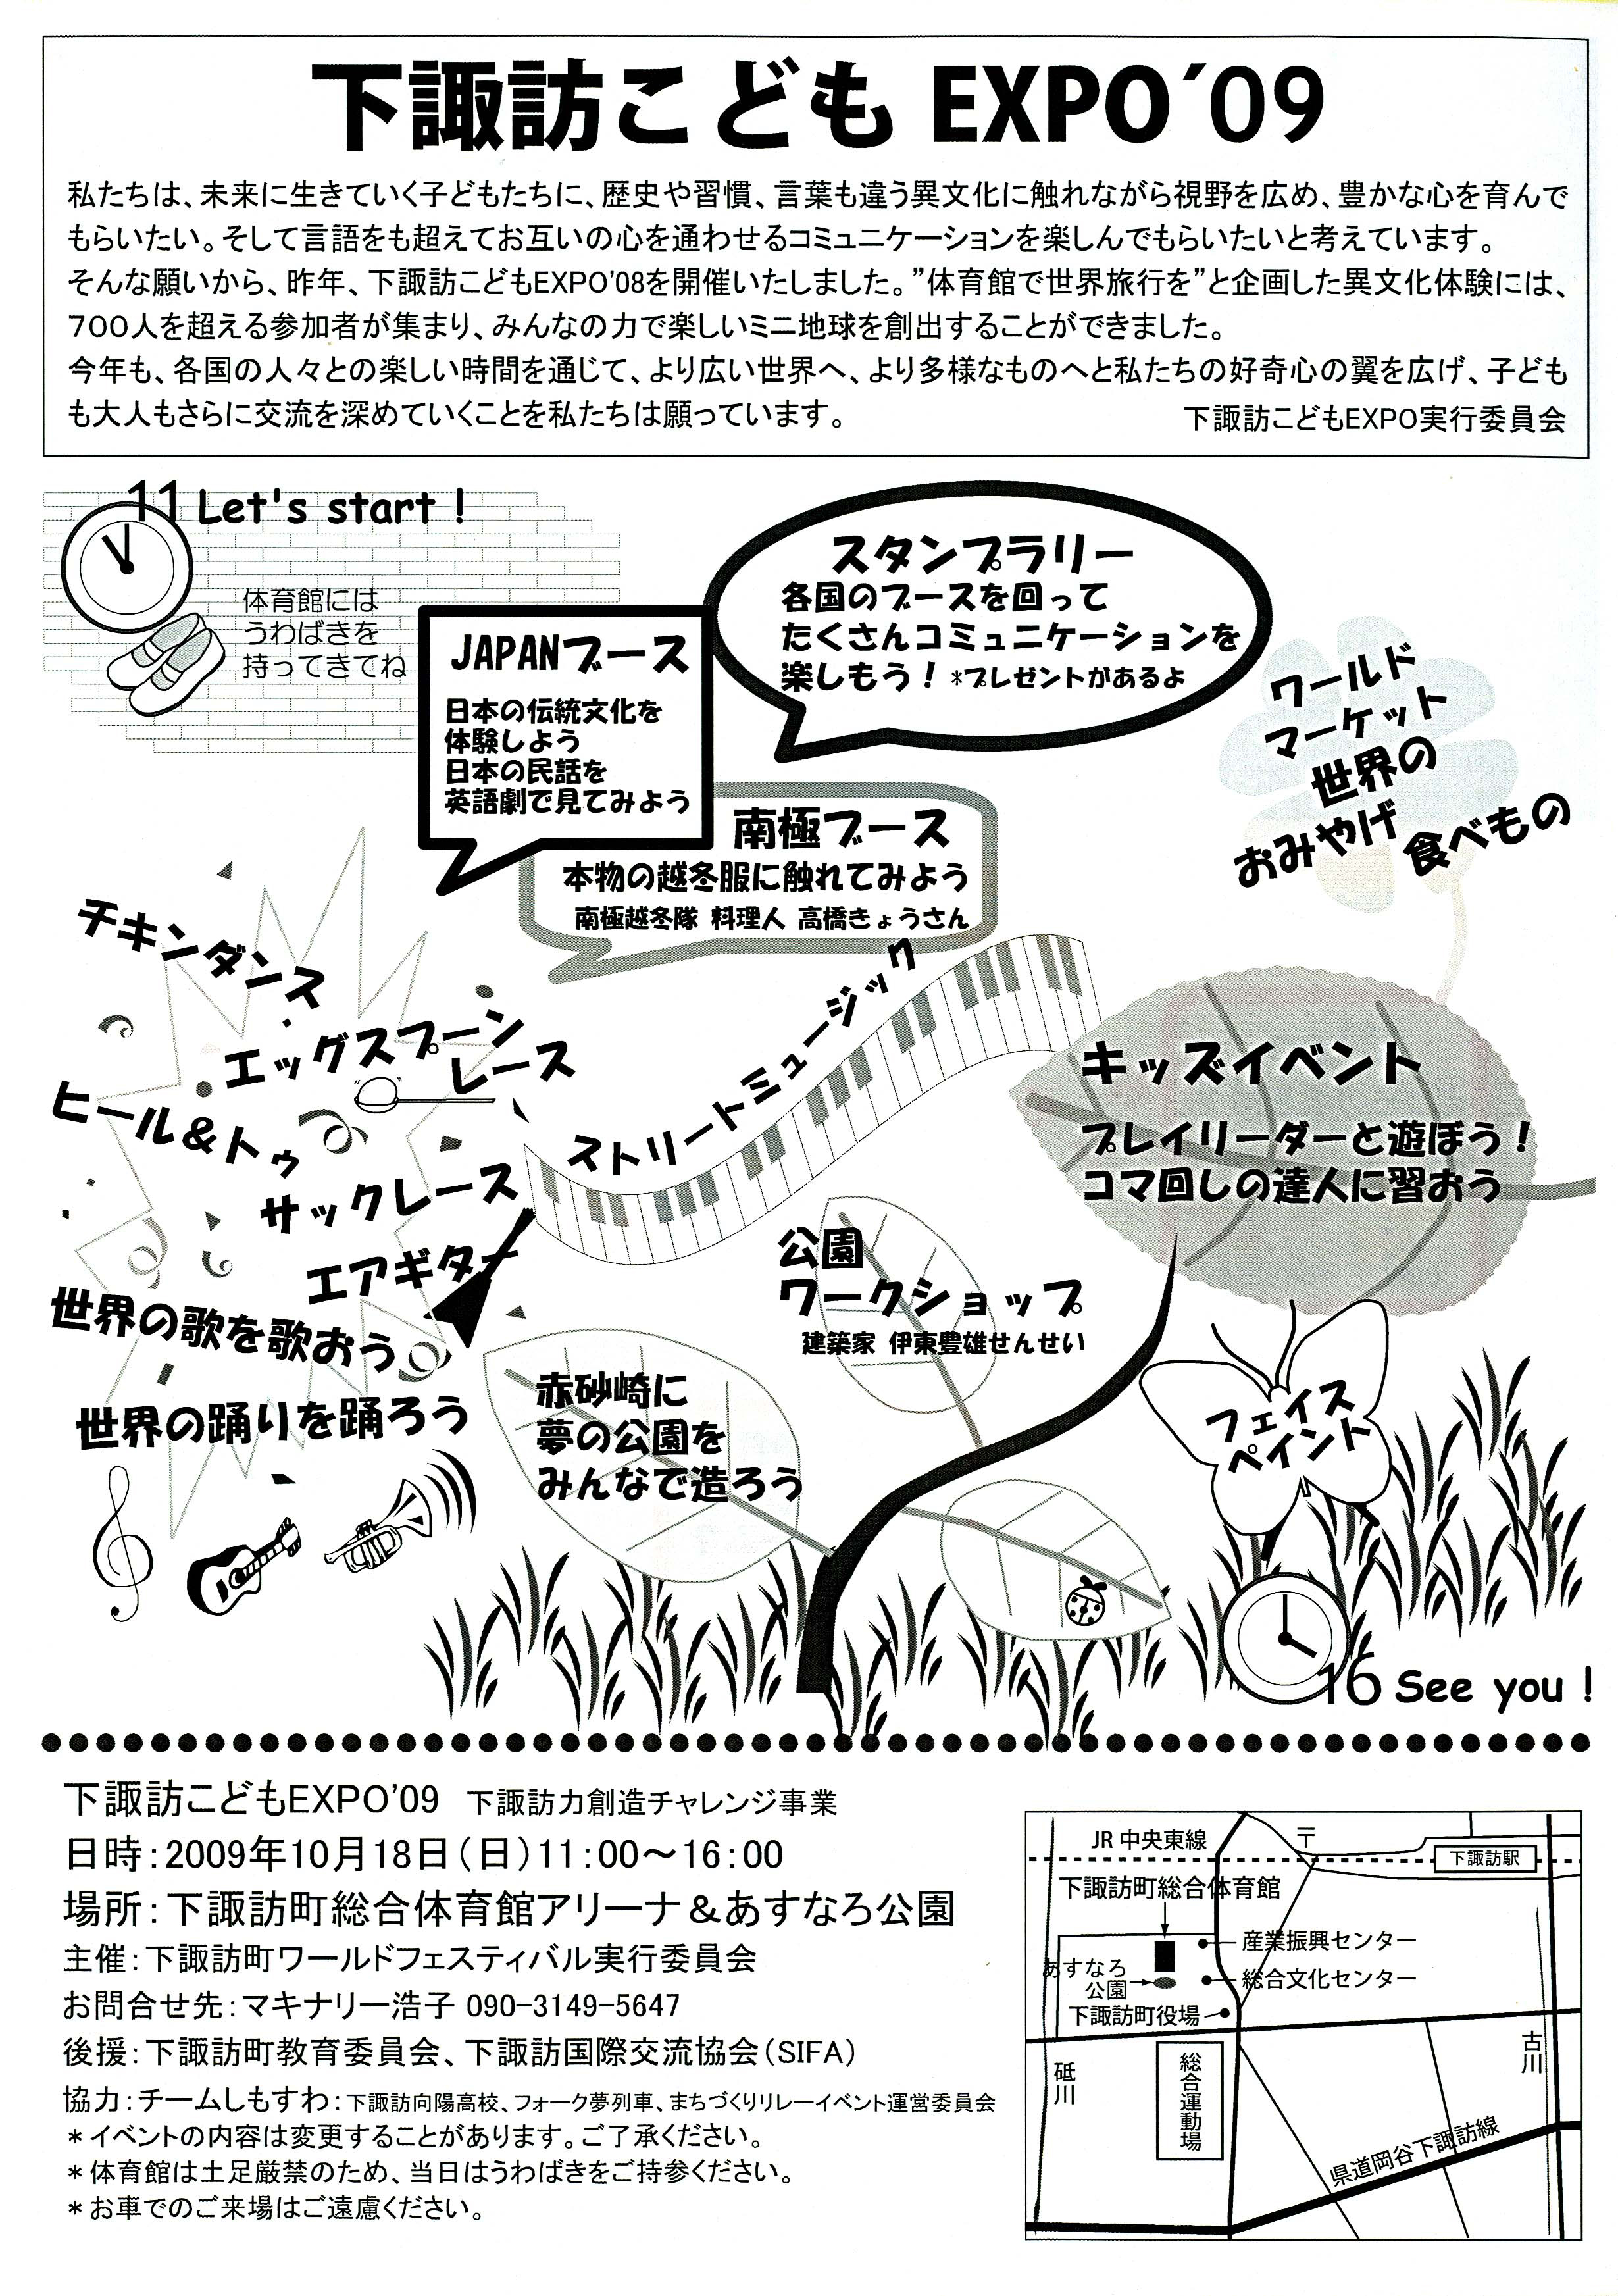 下諏訪こども EXPO´09
私たちは、未来に生きていく子どもたちに、歴史や習慣、言葉も違う異文化に触れながら視野を広め、豊かな心を育んで
もらいたい。そして言語をも超えてお互いの心を通わせるコミュニケーションを楽しんでもらいたいと考えています。
そんな願いから、昨年、下諏訪こどもEXPO'08を開催いたしました。”体育館で世界旅行を”と企画した異文化体験には、
700人を超える参加者が集まり、みんなの力で楽しいミニ地球を創出することができました。
今年も、各国の人々との楽しい時間を通じて、より広い世界へ、より多様なものへと私たちの好奇心の翼を広げ、子ども
も大人もさらに交流を深めていくことを私たちは願っています。
下諏訪こどもEXPO実行委員会
11 Let's start !
体育館には
うわばきを
持ってきてね
スタンプラリー
各国のブースを回って
たくさんコミュニケーションを
楽しもう！ *プレゼントがあるよ
JAPANブース
日本の伝統文化を
体験しよう
日本の民話を
英語劇で見てみよう
ワールド
マーケット
世界の
おみやげ
食べもの
南極ブース
本物の越冬服に触れてみよう
南極越冬隊 料理人 高橋きょうさん
チキンダンス
エッグスプーン
レース
ヒール＆トゥ
サックレース
エアギター
世界の歌を歌おう
世界の踊りを踊ろう
ストリートミュージック
キッズイベント
プレイリーダーと遊ぼう！
コマ回しの達人に習おう
公園
ワークショップ
建築家 伊東豊雄せんせい
赤砂崎に
夢の公園を
みんなで造ろう
フェイス
ペイント
16 See you !
下諏訪こどもEXPO’09 下諏訪力創造チャレンジ事業
日時：2009年10月18日（日）11：00～16：00
場所：下諏訪町総合体育館アリーナ＆あすなろ公園
主催：下諏訪町ワールドフェスティバル実行委員会
お問合せ先：マキナリー浩子 090-3149-5647
後援：下諏訪町教育委員会、下諏訪国際交流協会（SIFA）
協力：チームしもすわ：下諏訪向陽高校、フォーク夢列車、まちづくりリレーイベント運営委員会
＊イベントの内容は変更することがあります。ご了承ください。
＊体育館は土足厳禁のため、当日はうわばきをご持参ください。
＊お車でのご来場はご遠慮ください。
JR 中央東線
〒
下諏訪駅
下諏訪町総合体育館
産業振興センター
あすなろ
公園
総合文化センター
下諏訪町役場
砥川
総合運動場
古川
県道岡谷下諏訪線